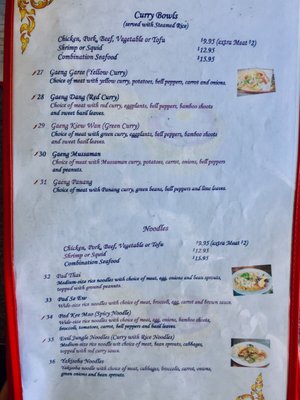 Curry Bowls
(served with Steamed Rice)
Chicken, Pork, Beef, Vegetable or Tofu $9.95 (extra Meat $2)
Shrimp or Squid $12.95
Combination Seafood $15.95
27 Gaeng Garee (Yellow Curry)
Choice of meat with yellow curry, potatoes, bell peppers, carrot and onions.
28 Gaeng Dang (Red Curry)
Choice of meat with red curry, eggplants, bell peppers, bamboo shoots
and sweet basil leaves.
29 Gaeng Kiew Wan (Green Curry)
Choice of meat with green curry, eggplants, bell peppers, bamboo
and sweet basil leaves.
30 Gaeng Mussaman
Choice of meat with Mussaman curry, potatoes, carrot, onions, bell peppers
and peanuts.
31 Gaeng Panang
Choice of meat with Panang curry, green beans, bell peppers and lime leaves.
Noodles
Chicken, Pork, Beef, Vegetable or Tofu $9.95 (extra Meat $2)
Shrimp or Squid $12.95
Combination Seafood $15.95
32 Pad Thai
Medium-size rice noodles with choice of meat, egg, onions and bean sprouts,
topped with ground peanuts.
33 Pad Se Ew
Wide-size rice noodles with choice of meat, broccoli, egg, carrot and brown sauce.
34 Pad Kee Mao (Spicy Noodle)
Wide-size rice noodles with choice of meat, egg, onions, bamboo shoots,
broccoli, tomatoes, carrot, bell peppers and basil leaves.
35 Evil Jungle Noodles (Curry with Rice Noodles)
Medium-size rice noodles with choice of meat, bean sprouts, cabbages,
topped with red curry sauce.
36 Yakisoba Noodles
Yakisoba noodle with choice of meat, cabbages, broccoli, carrot, onions,
green onions and bean sprouts.